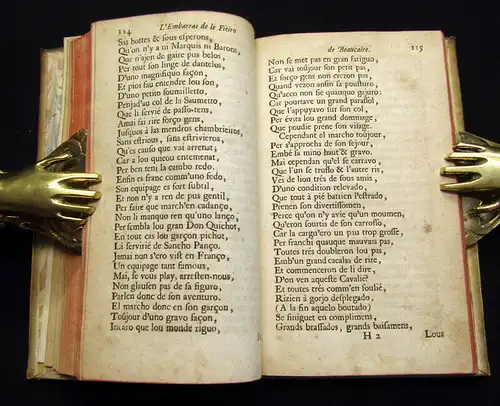 114 L'Embarras de la Fieiro
Sas bottes & sous esperons,
Qu'on n'y a ni Marquis ni Barons,
Que n'ajon de gaire pus belos,
Per tout son linge de dantelos,
D'uno magnifiquo façon,
Et piot fau entendre lou son,
D'uno petito sounailletto,
Penjad'au col de la Saumetto,
Que li servié de passo-tens,
Amai fai rire forço gens,
Jusquos à las mendros chambrieiros,
Sans estrious, sans estrivieros,
Qu'es causo que vai arrenat;
Car a lou queou entemenat,
Per ben tenu la cambo redo.
Enfin es franc comm'uno fedo,
Son equipage es fort subtil,
Et non n'y a ren de pus gentil,
Per faire que march'en cadanço,
Non li manquo ren qu'uno lanço,
Per sembla lou gran Don Quichot,
En tout cas lou garçon pichot,
Li servirié de Sancho Panço.
Jamai non s'ero vist en Franço,
Un equipage tant famous,
Mai, se vous play, arresten-nous,
Non glausen pas de sa figuro,
Parlen donc de son aventuro.
El marcho donc en son garçon,
Toujour d'uno gravo façon,
Incaro que lou monde riguo,
de Beaucaire. 115
Non se met pas en gran fatiguo,
Car vai toujour son petit pas,
Et forço gens non crezon pas,
Quand vezon ansin sa pousturo,
Qu'acco non sie quauquo gajuro:
Car pourtavo un grand parassol,
Que l'appuyavo sur son col,
Per evita lou grand dommage,
Que poudie prene son visage.
Cependant el marcho toujour,
Per s'approcha de son sejour,
Embé sa mino haut' & gravo.
Mai cependan qu'el se carravo,
Que l'un se truffo & l'autre ris,
Vei de lion tres de sous amis,
D'uno condition relevado,
Que tout à pié battien l'estrado,
Prenen son divertissomen,
Perce qu'on n'y avie qu'un moumen,
Qu'eron sourtis de son carrosso,
Car la carga'ero un pau trop grosso,
Per franchi quauque mauvais pas,
Toutes tres doubleron lou pas,
Emb'un grand cacalas de rire,
Et commenceron de li dire,
D'on ven aqueste Cavalié?
Et toutes très comm'en foulié,
Rizien à gorjo desplegado,
(A la fin aquelo boutado)
Se finiguet en complimens,
Grands brassados, grands baisamens,
H 2 Lous